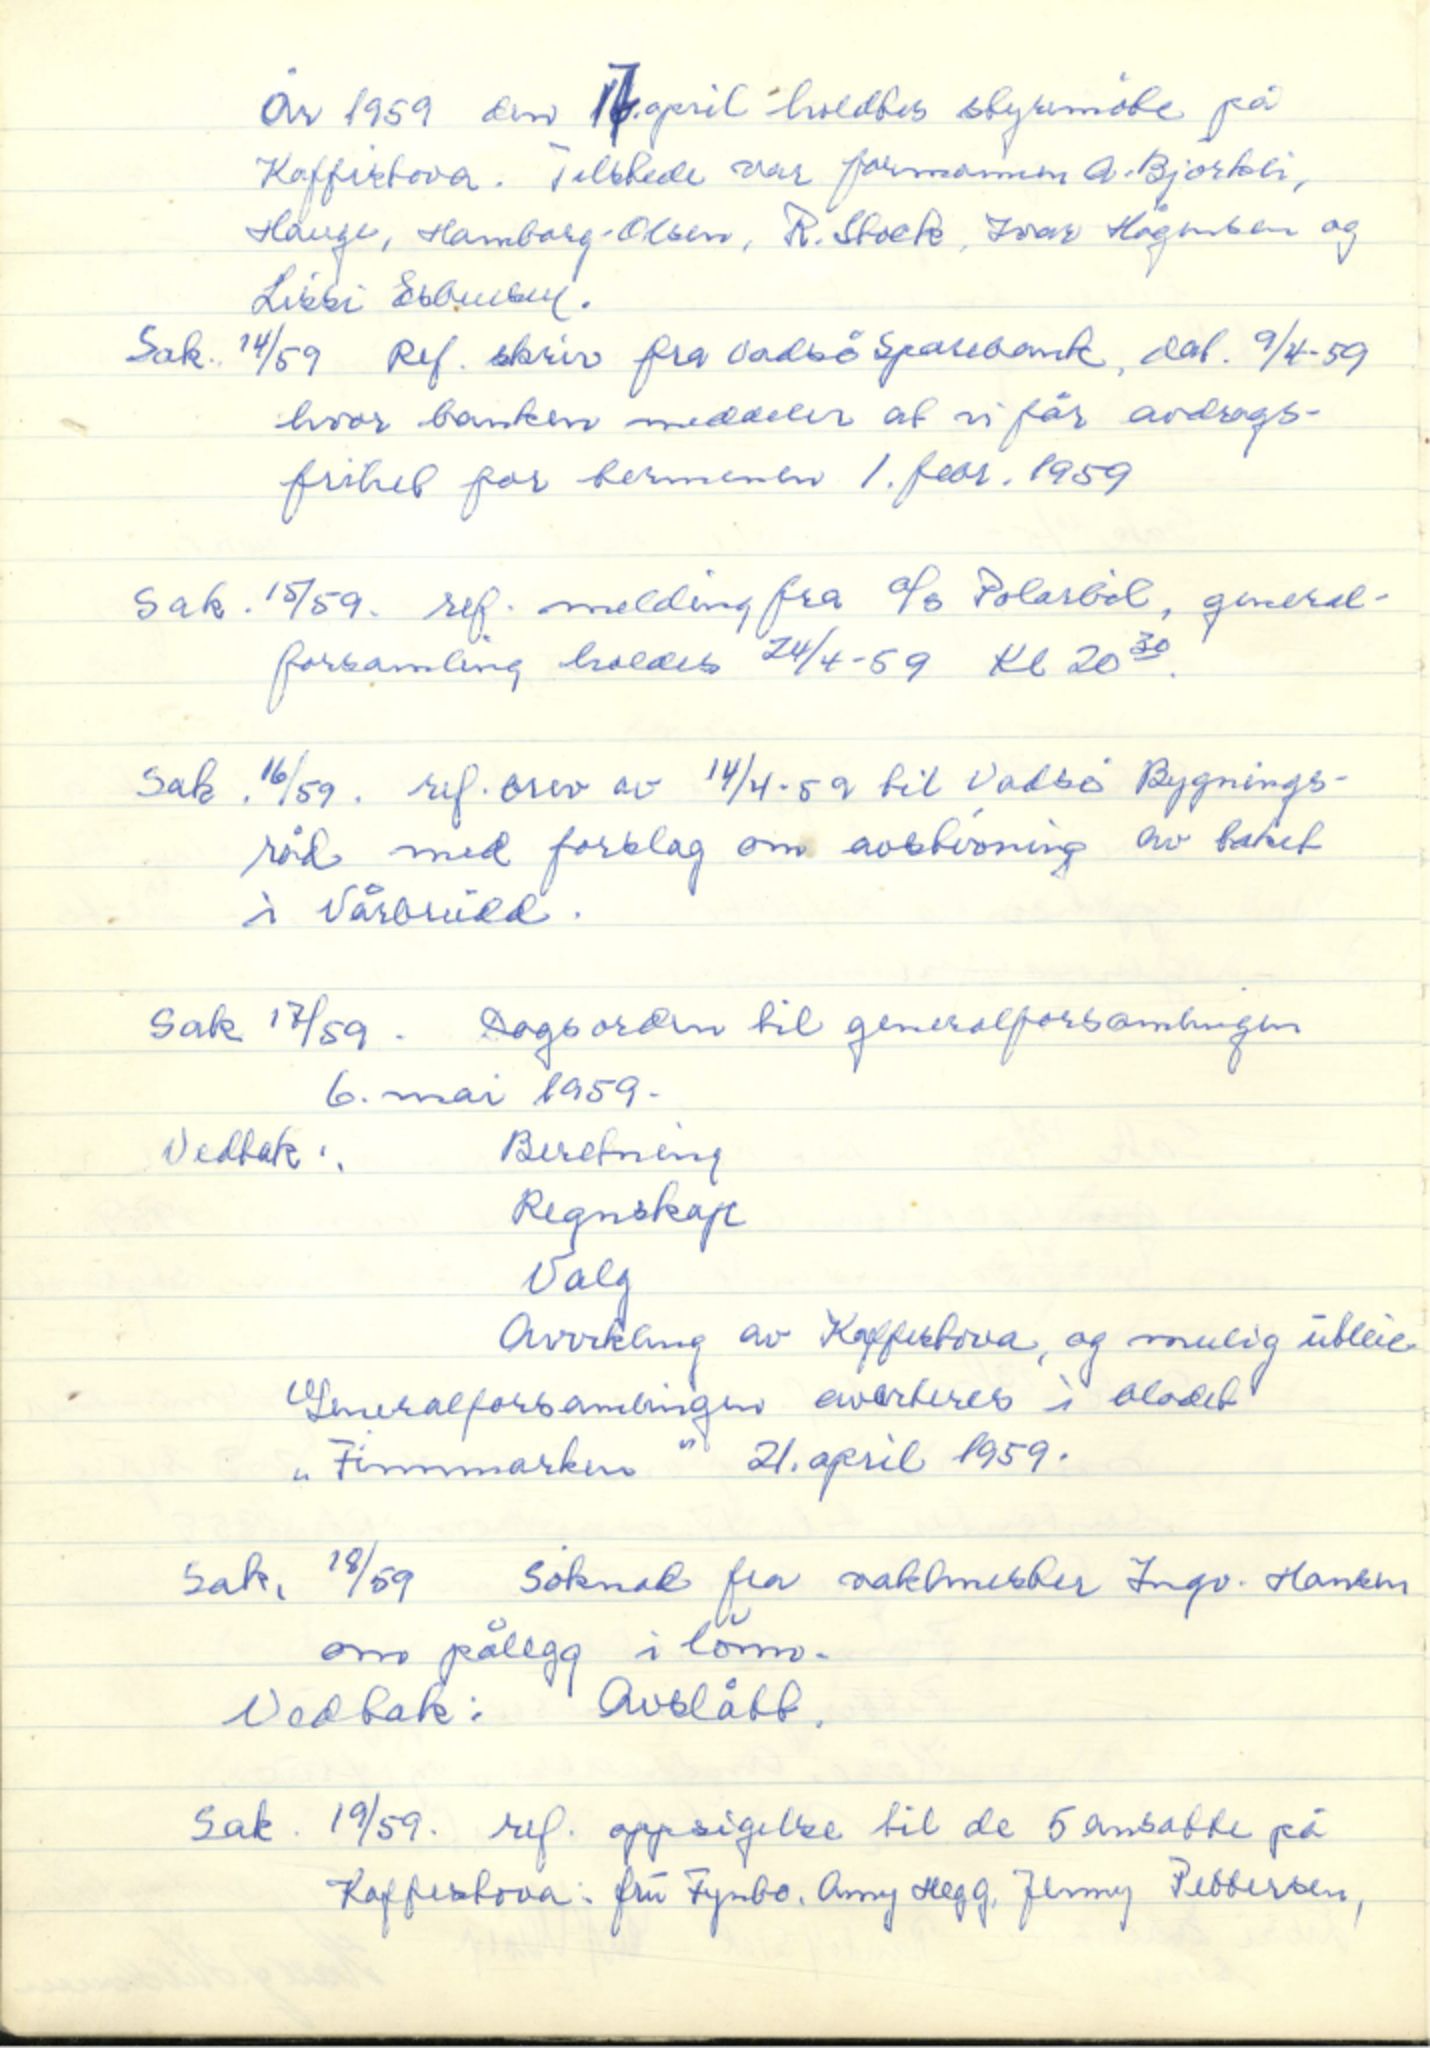 År 1959 den 17. april holdtes styremöte på
Kaffistova. Tilstede var formannen A. Björkli,
Hauge, Hamborg-Olsen, R. Stock, Ivar Hågensen og
Lissi Esbensen.
Sak. 14/59 Ref. skriv fra Vadsö Sparebank, dat. 9/4-59
hvor banken meddeler at vi får avdrags-
frihet for terminen 1. febr. 1959
Sak. 15/59. ref. melding fra a/s Polarbil, general-
forsamling holdes 24/4-59 Kl 20 30.
Sak. 16/59. ref. brev av 14/4-59 til Vadsö Bygnings-
råd med forslag om avstivning av taket
i Vårbrudd.
Sak 17/59. Dagsorden til generalforsamlingen
6. mai 1959.
Vedtak: Beretning
Regnskap
Valg
Avvikling av Kaffestova, og mulig utleie
Generalforsamlingen averteres i bladet
"Finnmarken" 21. april 1959.
Sak. 18/59 Söknad fra vaktmester Ingv. Hansen
om pålegg i lönn.
Vedtak: Avslått.
Sak. 19/59. ref. oppsigelse til de 5 ansatte på
Kaffestova: fru Fynbo, Amy Hegg, Jenny Pettersen,